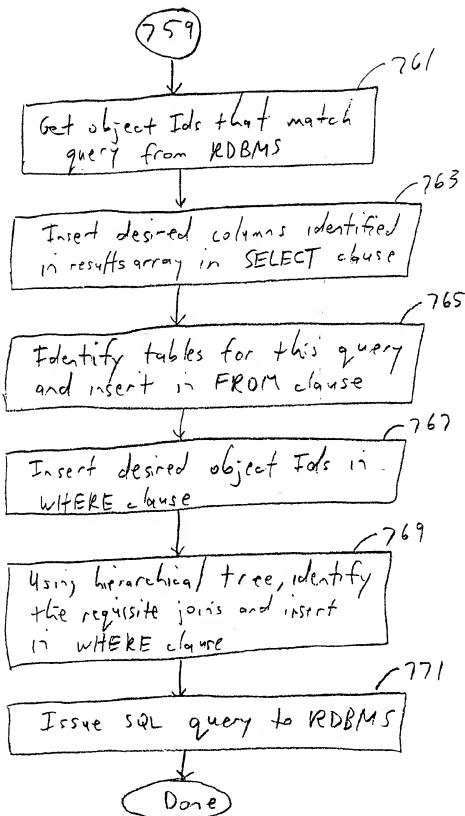 759
761
Get object Ids that match
query from RDBMS
763
Insert desired columns identified
in results array in SELECT clause
765
Identify tables for this query
and insert in FROM clause
767
Insert desired object Ids in
WHERE clause
769
Using hierarchical tree, identify
the requisite joins and insert
in WHERE clause
771
Issue SQL query to RDBMS
Done